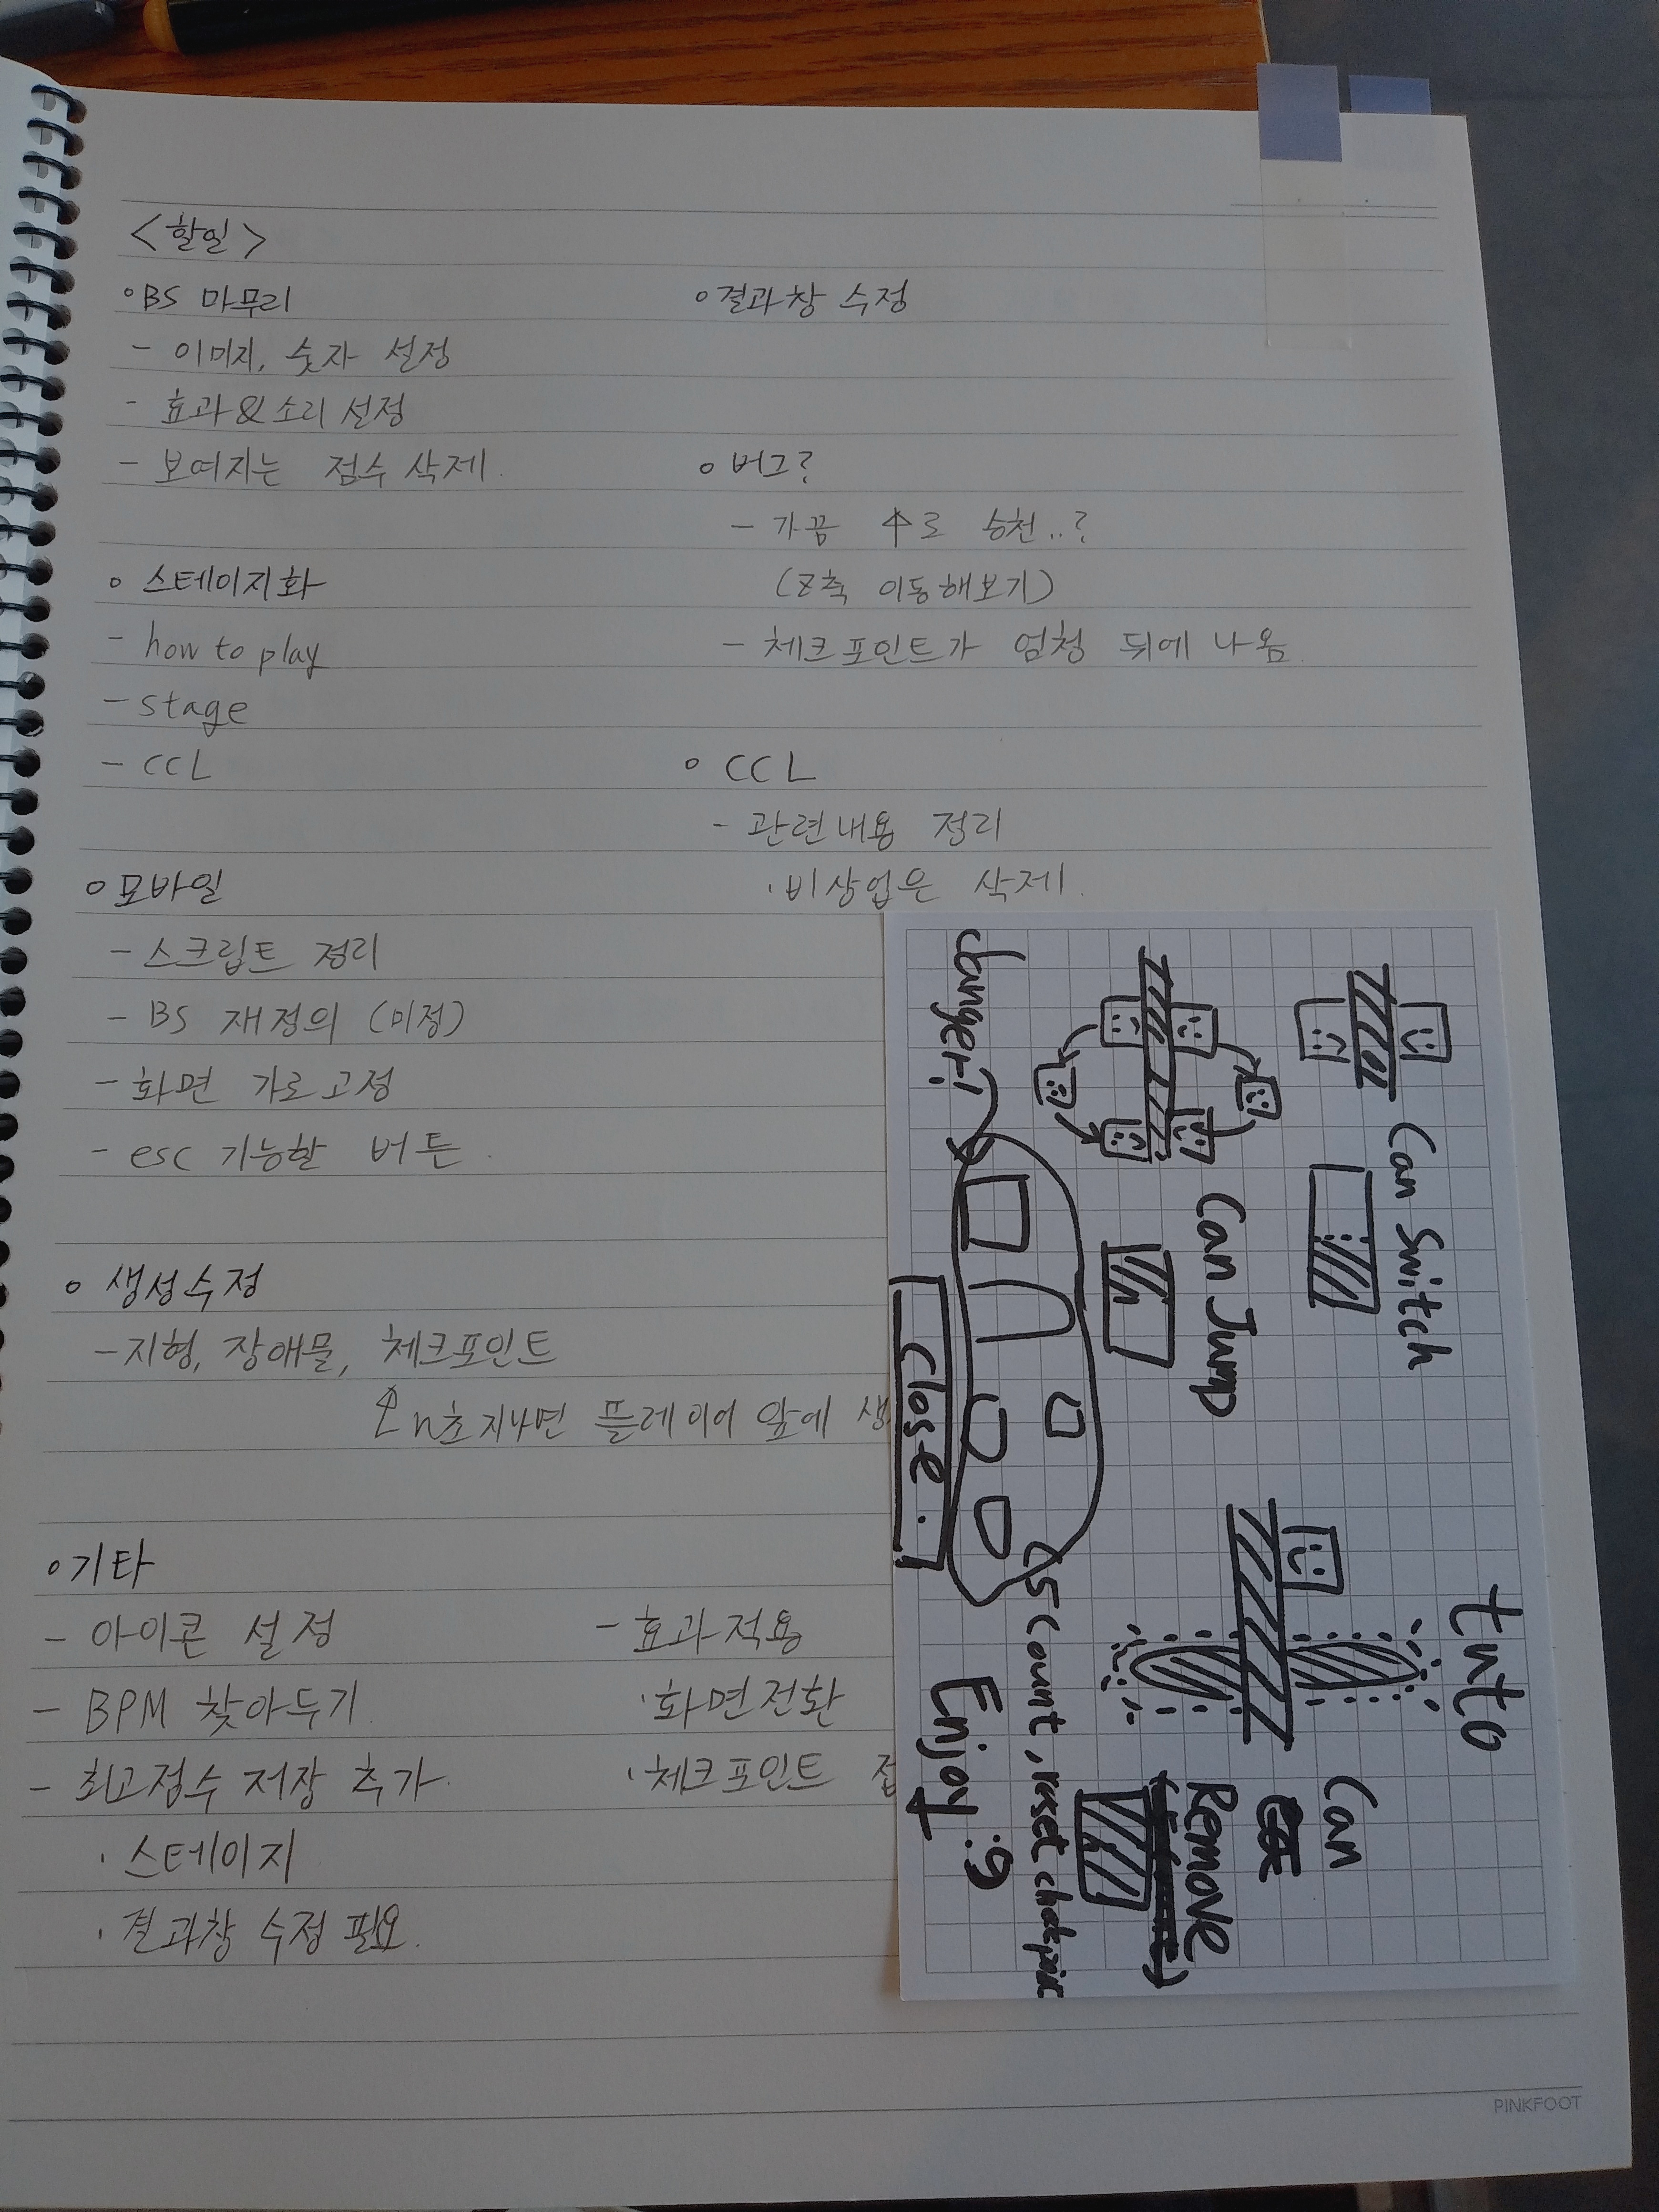 <할일>
○BS 마무리
- 이미지, 숫자 설정
- 효과&소리 설정
- 보여지는 점수 삭제.
○ 스테이지화
- how to play
- stage
- CCL
○모바일
- 스크립트 정리
- BS 재정의 (미정)
- 화면 가로고정
- esc 기능할 버튼.
○ 생성수정
- 지형, 장애물, 체크포인트
↑ n초 지나면 플레이어 앞에 생
○기타
- 아이콘 설정
- BPM 찾아두기
- 최고점수 저장 추가.
· 스테이지
· 결과창 수정 필요.
- 효과적용
· 화면전환
· 체크포인트
○결과창 수정
○ 버그?
- 가끔 ↑로 승천..?
(z축 이동해보기)
- 체크포인트가 엄청 뒤에 나옴.
○ CCL
- 관련내용 정리
· 비상업은 삭제.
tuto
Can Switch
Can Jump
Can
Remove
danger!
5 count, reset
Close.
Enjoy
PINKFOOT